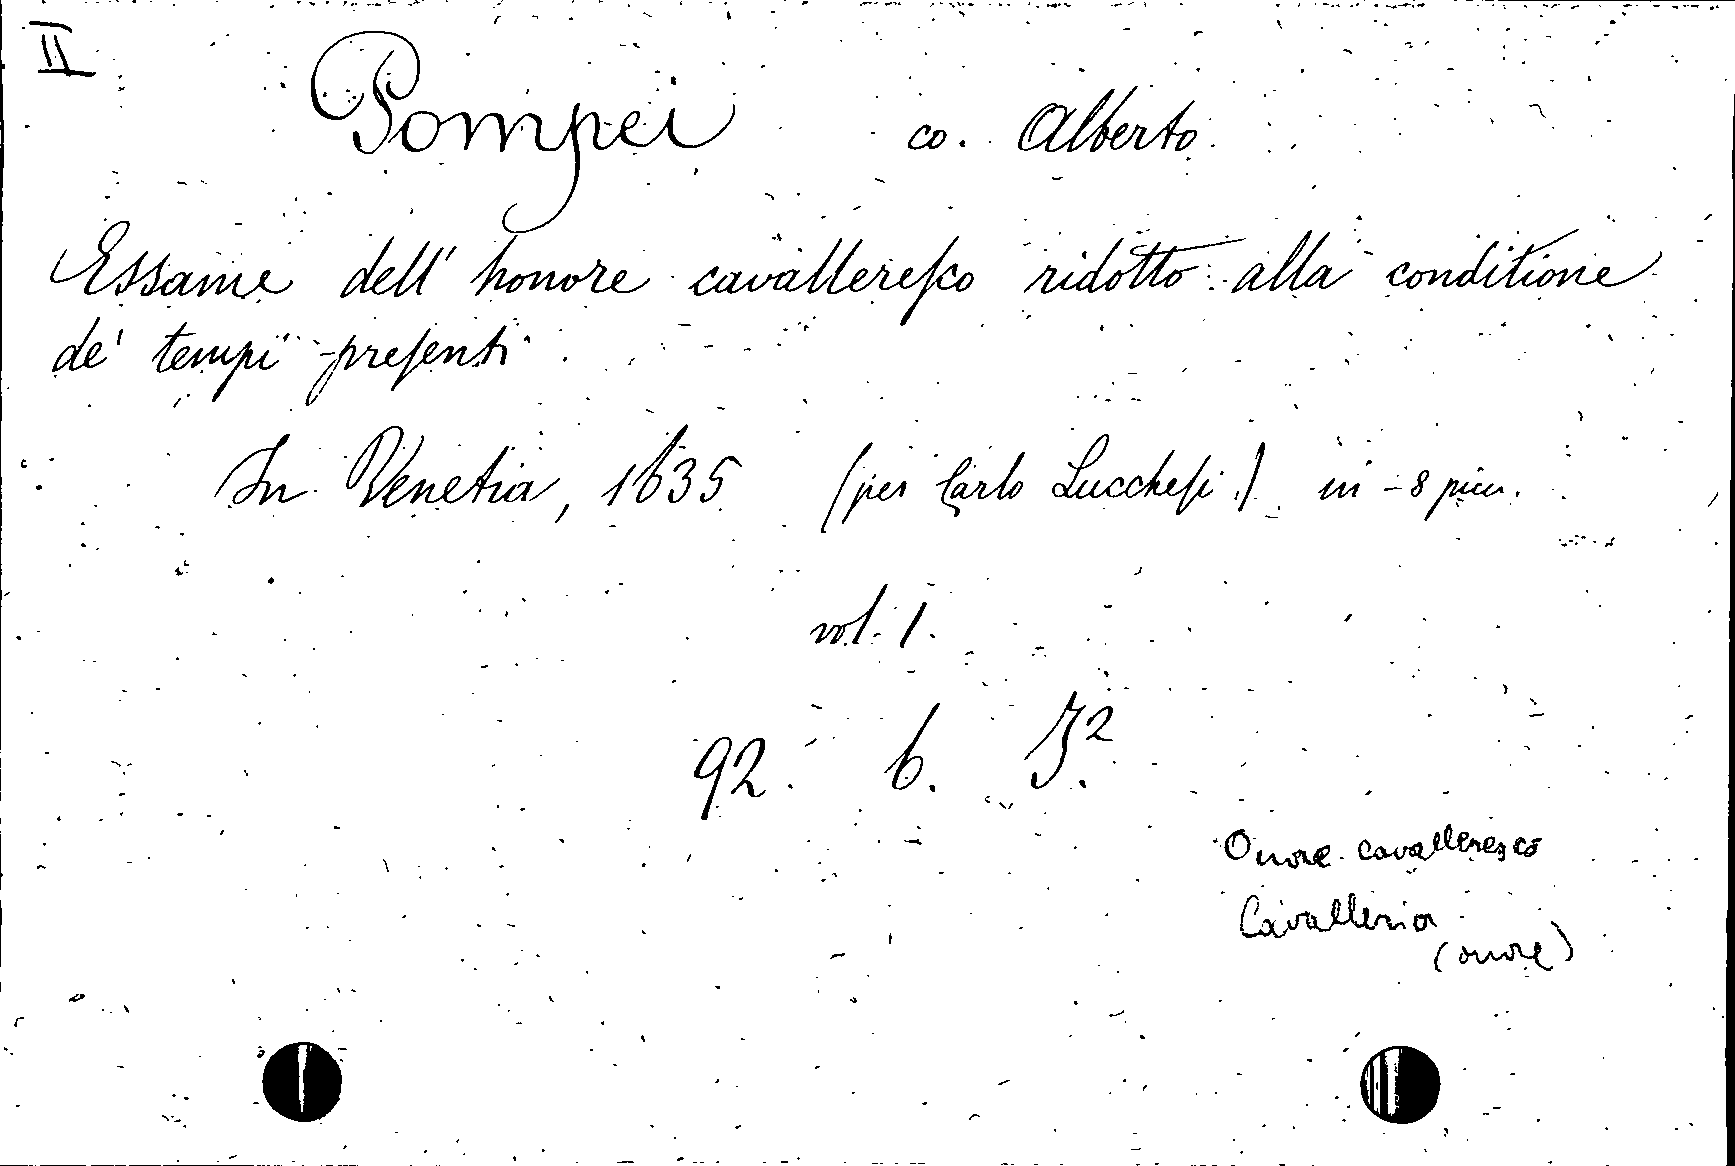 II
Pompei co. Alberto
Essame dell' honore cavallereſco ridotto alla conditione
de' tempi preſenti
In Venetia, 1635 (per Carlo Luccheſi) in-8 picc.
vol. 1.
92. 6. J.²
Onore cavalleresco
Cavalleria
(onore)